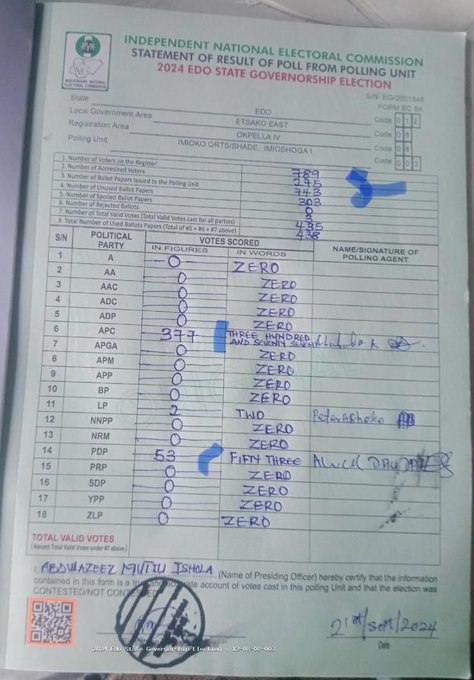 INDEPENDENT NATIONAL ELECTORAL COMMISSION
STATEMENT OF RESULT OF POLL FROM POLLING UNIT
2024 EDO STATE GOVERNORSHIP ELECTION
INDEPENDENT NATIONAL ELECTORAL COMMISSION
S/N: EG/0001549
FORM EC 8A
State EDO Code 0 1 2
Local Government Area ETSAKO EAST Code 0 8
Registration Area OKPELLA IV Code 0 8
Polling Unit IMIOKO QRTS/SHADE, IMIOSHOGA I Code 0 0 3
1. Number of Voters on the Register 789
2. Number of Accredited Voters
3. Number of Ballot Papers Issued to the Polling Unit 743
4. Number of Unused Ballot Papers 303
5. Number of Spoiled Ballot Papers 0
6. Number of Rejected Ballots
7. Number of Total Valid Votes (Total Valid Votes cast for all parties)
8. Total Number of Used Ballots Papers (Total of #5 + #6 + #7 above)
S/N POLITICAL PARTY VOTES SCORED NAME/SIGNATURE OF POLLING AGENT
IN FIGURES IN WORDS
1 A 0 ZERO
2 AA 0 ZERO
3 AAC 0 ZERO
4 ADC 0 ZERO
5 ADP 0 ZERO
6 APC 377 THREE HUNDRED AND SEVENTY SEVEN
7 APGA 0 ZERO
8 APM 0 ZERO
9 APP 0 ZERO
10 BP 0 ZERO
11 LP 2 TWO Peter
12 NNPP 0 ZERO
13 NRM 0 ZERO
14 PDP 53 FIFTY THREE
15 PRP 0 ZERO
16 SDP 0 ZERO
17 YPP 0 ZERO
18 ZLP 0 ZERO
TOTAL VALID VOTES
(Record Total Valid Votes under #7 above)
I, ABDULAZEEZ ISHOLA (Name of Presiding Officer) hereby certify that the information
contained in this form is a account of votes cast in this polling Unit and that the election was
CONTESTED/NOT CONTESTED
21st/Sept/2024
Date
2024 Edo State Governorship Election - 12-08-08-003